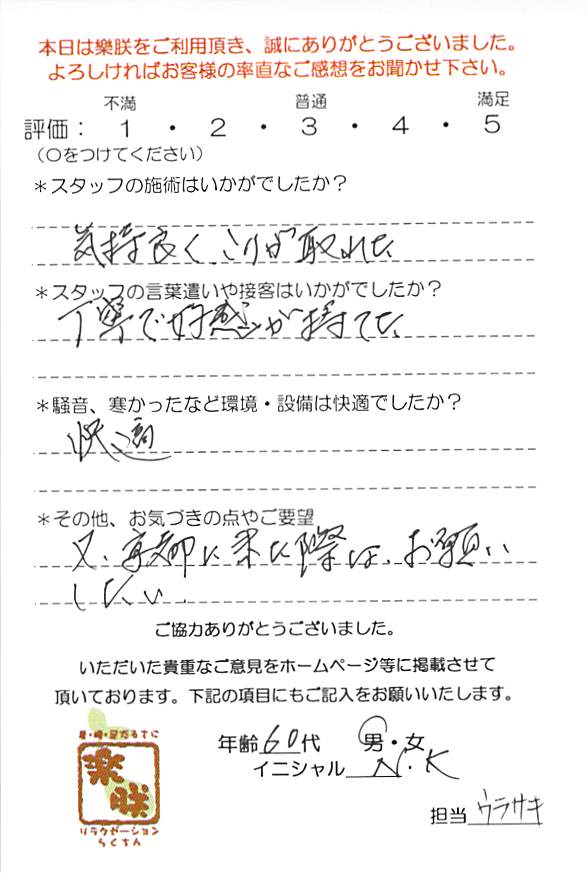 本日は樂朕をご利用頂き、誠にありがとうございました。
よろしければお客様の率直なご感想をお聞かせ下さい。
不満 普通 満足
評価： 1 ・ 2 ・ 3 ・ 4 ・ 5
（〇をつけてください）
＊スタッフの施術はいかがでしたか？
気持良く、こりが取れた
＊スタッフの言葉遣いや接客はいかがでしたか？
丁寧で好感が持てた
＊騒音、寒かったなど環境・設備は快適でしたか？
快適
＊その他、お気づきの点やご要望
又、京都に来た際は、お願い
したい。
ご協力ありがとうございました。
いただいた貴重なご意見をホームページ等に掲載させて
頂いております。下記の項目にもご記入をお願いいたします。
年齢 60 代 男・女
イニシャル N.K
担当 ウラサキ
樂朕
リラクゼーション
らくちん